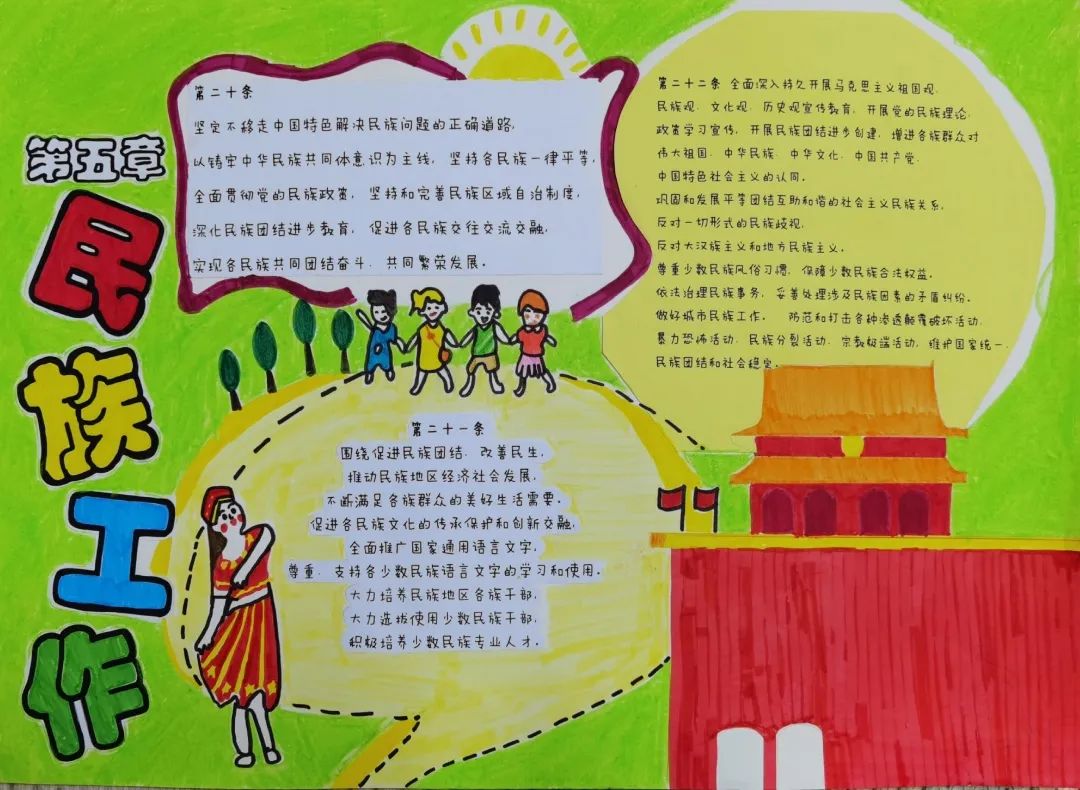 第五章
民族工作
第二十条
坚定不移走中国特色解决民族问题的正确道路,
以铸牢中华民族共同体意识为主线, 坚持各民族一律平等,
全面贯彻党的民族政策, 坚持和完善民族区域自治制度,
深化民族团结进步教育, 促进各民族交往交流交融,
实现各民族共同团结奋斗、共同繁荣发展。
第二十一条
围绕促进民族团结、改善民生,
推动民族地区经济社会发展,
不断满足各族群众的美好生活需要。
促进各民族文化的传承保护和创新交融,
全面推广国家通用语言文字,
尊重、支持各少数民族语言文字的学习和使用。
大力培养民族地区各族干部,
大力选拔使用少数民族干部,
积极培养少数民族专业人才。
第二十二条 全面深入持久开展马克思主义祖国观、
民族观、文化观、历史观宣传教育, 开展党的民族理论、
政策学习宣传, 开展民族团结进步创建, 增进各族群众对
伟大祖国、中华民族、中华文化、中国共产党、
中国特色社会主义的认同。
巩固和发展平等团结互助和谐的社会主义民族关系,
反对一切形式的民族歧视,
反对大汉族主义和地方民族主义。
尊重少数民族风俗习惯, 保障少数民族合法权益。
依法治理民族事务, 妥善处理涉及民族因素的矛盾纠纷、
做好城市民族工作。 防范和打击各种渗透颠覆破坏活动、
暴力恐怖活动、民族分裂活动、宗教极端活动, 维护国家统一、
民族团结和社会稳定。